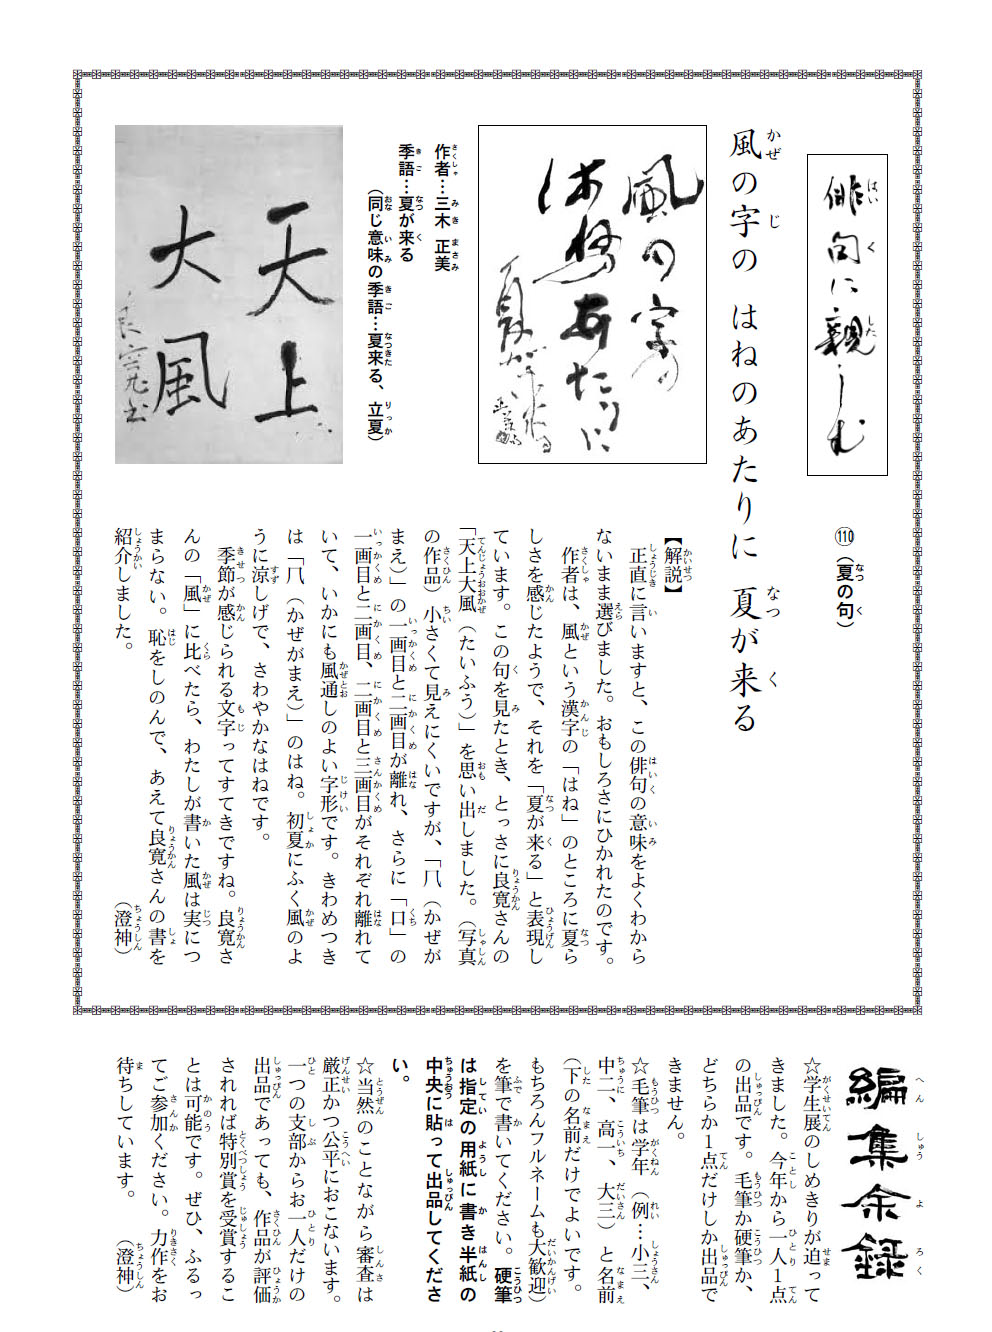 俳句に親しむ
⑩（夏の句）
風の字の はねのあたりに 夏が来る
風の字の
はねあたりに
夏が来る
作者…三木 正美
季語…夏が来る
（同じ意味の季語…夏来る、立夏）
天上
大風
【解説】
正直に言いますと、この俳句の意味をよくわから
ないまま選びました。おもしろさにひかれたのです。
作者は、風という漢字の「はね」のところに夏ら
しさを感じたようで、それを「夏が来る」と表現し
ています。この句を見たとき、とっさに良寛さんの
「天上大風（たいふう）」を思い出しました。（写真
の作品）小さくて見えにくいですが、「⺇（かぜが
まえ）」の一画目と二画目が離れ、さらに「口」の
一画目と二画目、二画目と三画目がそれぞれ離れて
いて、いかにも風通しのよい字形です。きわめつき
は「⺇（かぜがまえ）」のはね。初夏にふく風のよ
うに涼しげで、さわやかなはねです。
季節が感じられる文字ってすてきですね。良寛さ
んの「風」に比べたら、わたしが書いた風は実につ
まらない。恥をしのんで、あえて良寛さんの書を
紹介しました。
（澄神）
編集余録
☆学生展のしめきりが迫って
きました。今年から一人１点
の出品です。毛筆か硬筆か、
どちらか１点だけしか出品で
きません。
☆毛筆は学年（例…小三、
中二、高一、大三）と名前
（下の名前だけでよいです。
もちろんフルネームも大歓迎）
を筆で書いてください。硬筆
は指定の用紙に書き半紙の
中央に貼って出品してくださ
い。
☆当然のことながら審査は
厳正かつ公平におこないます。
一つの支部からお一人だけの
出品であっても、作品が評価
されれば特別賞を受賞するこ
とは可能です。ぜひ、ふるっ
てご参加ください。力作をお
待ちしています。（澄神）